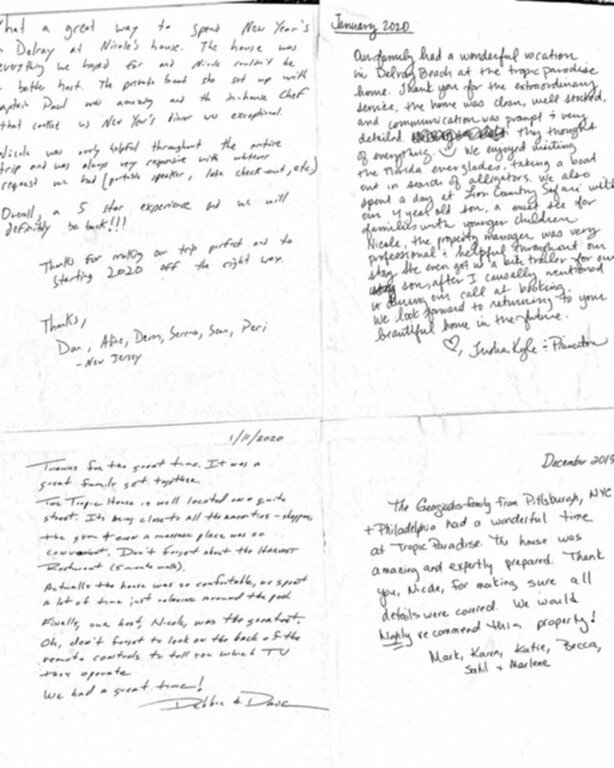 What a great way to spend New Year's
in Delray at Nicole's house. The house was
everything we hoped for and Nicole couldn't be
a better host. The private boat she set up with
Captain Paul was amazing and the in-house Chef
that cooked us New Year's dinner was exceptional.
Nicole was overly helpful throughout the entire
trip and was always very responsive with whatever
request we had (portable speaker, late check-out, etc.)
Overall, a 5 star experience and we will
definitely be back!!!
Thanks for making our trip perfect and to
starting 2020 off the right way.
Thanks,
Dan, Aline, Deron, Serena, Sean, Peri
- New Jersey
January 2020
Our family had a wonderful vacation
in Delray Beach at the tropic paradise
home. Thank you for the extraordinary
service, the home was clean, well stocked,
and communication was prompt & very
detailed. They thought
of everything. We enjoyed visiting
the Florida everglades, taking a boat
out in search of alligators. We also
spent a day at Lion Country Safari with
our 4 year old son, a must see for
families with younger children
Nicole, the property manager was very
professional & helpful throughout our
stay. She even got us a bike trailer for our
son, after I causally mentioned
it during our call at booking.
We look forward to returning to your
beautiful home in the future.
♡, India Kyle & Princeton
1/11/2020
Thanks for the great time. It was a
great family get together.
The Tropic House is well located on a quite
street. It's being close to all the amenities - shoppes,
the gym & even a massage place was so
convenient. Don't forget about the Harvest
Restaurant (5 minute walk).
Actually the house was so comfortable, we spent
a lot of time just relaxing around the pool
Finally, our host, Nicole, was the greatest.
Oh, don't forget to look on the back of the
remote controls to tell you which TV
they operate
We had a great time!
Debbie & Dave
December 2019
The family from Pittsburgh, NYC
+ Philadelphia had a wonderful time
at Tropic Paradise. The house was
amazing and expertly prepared. Thank
you, Nicole, for making sure all
details were covered. We would
highly recommend this property!
Mark, Karen, Katie, Becca,
+ Marlene